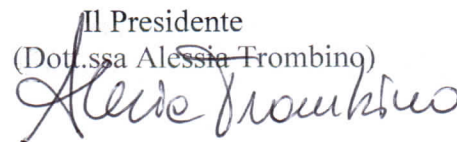 Il Presidente
(Dott.ssa Alessia Trombino)
Alessia Trombino